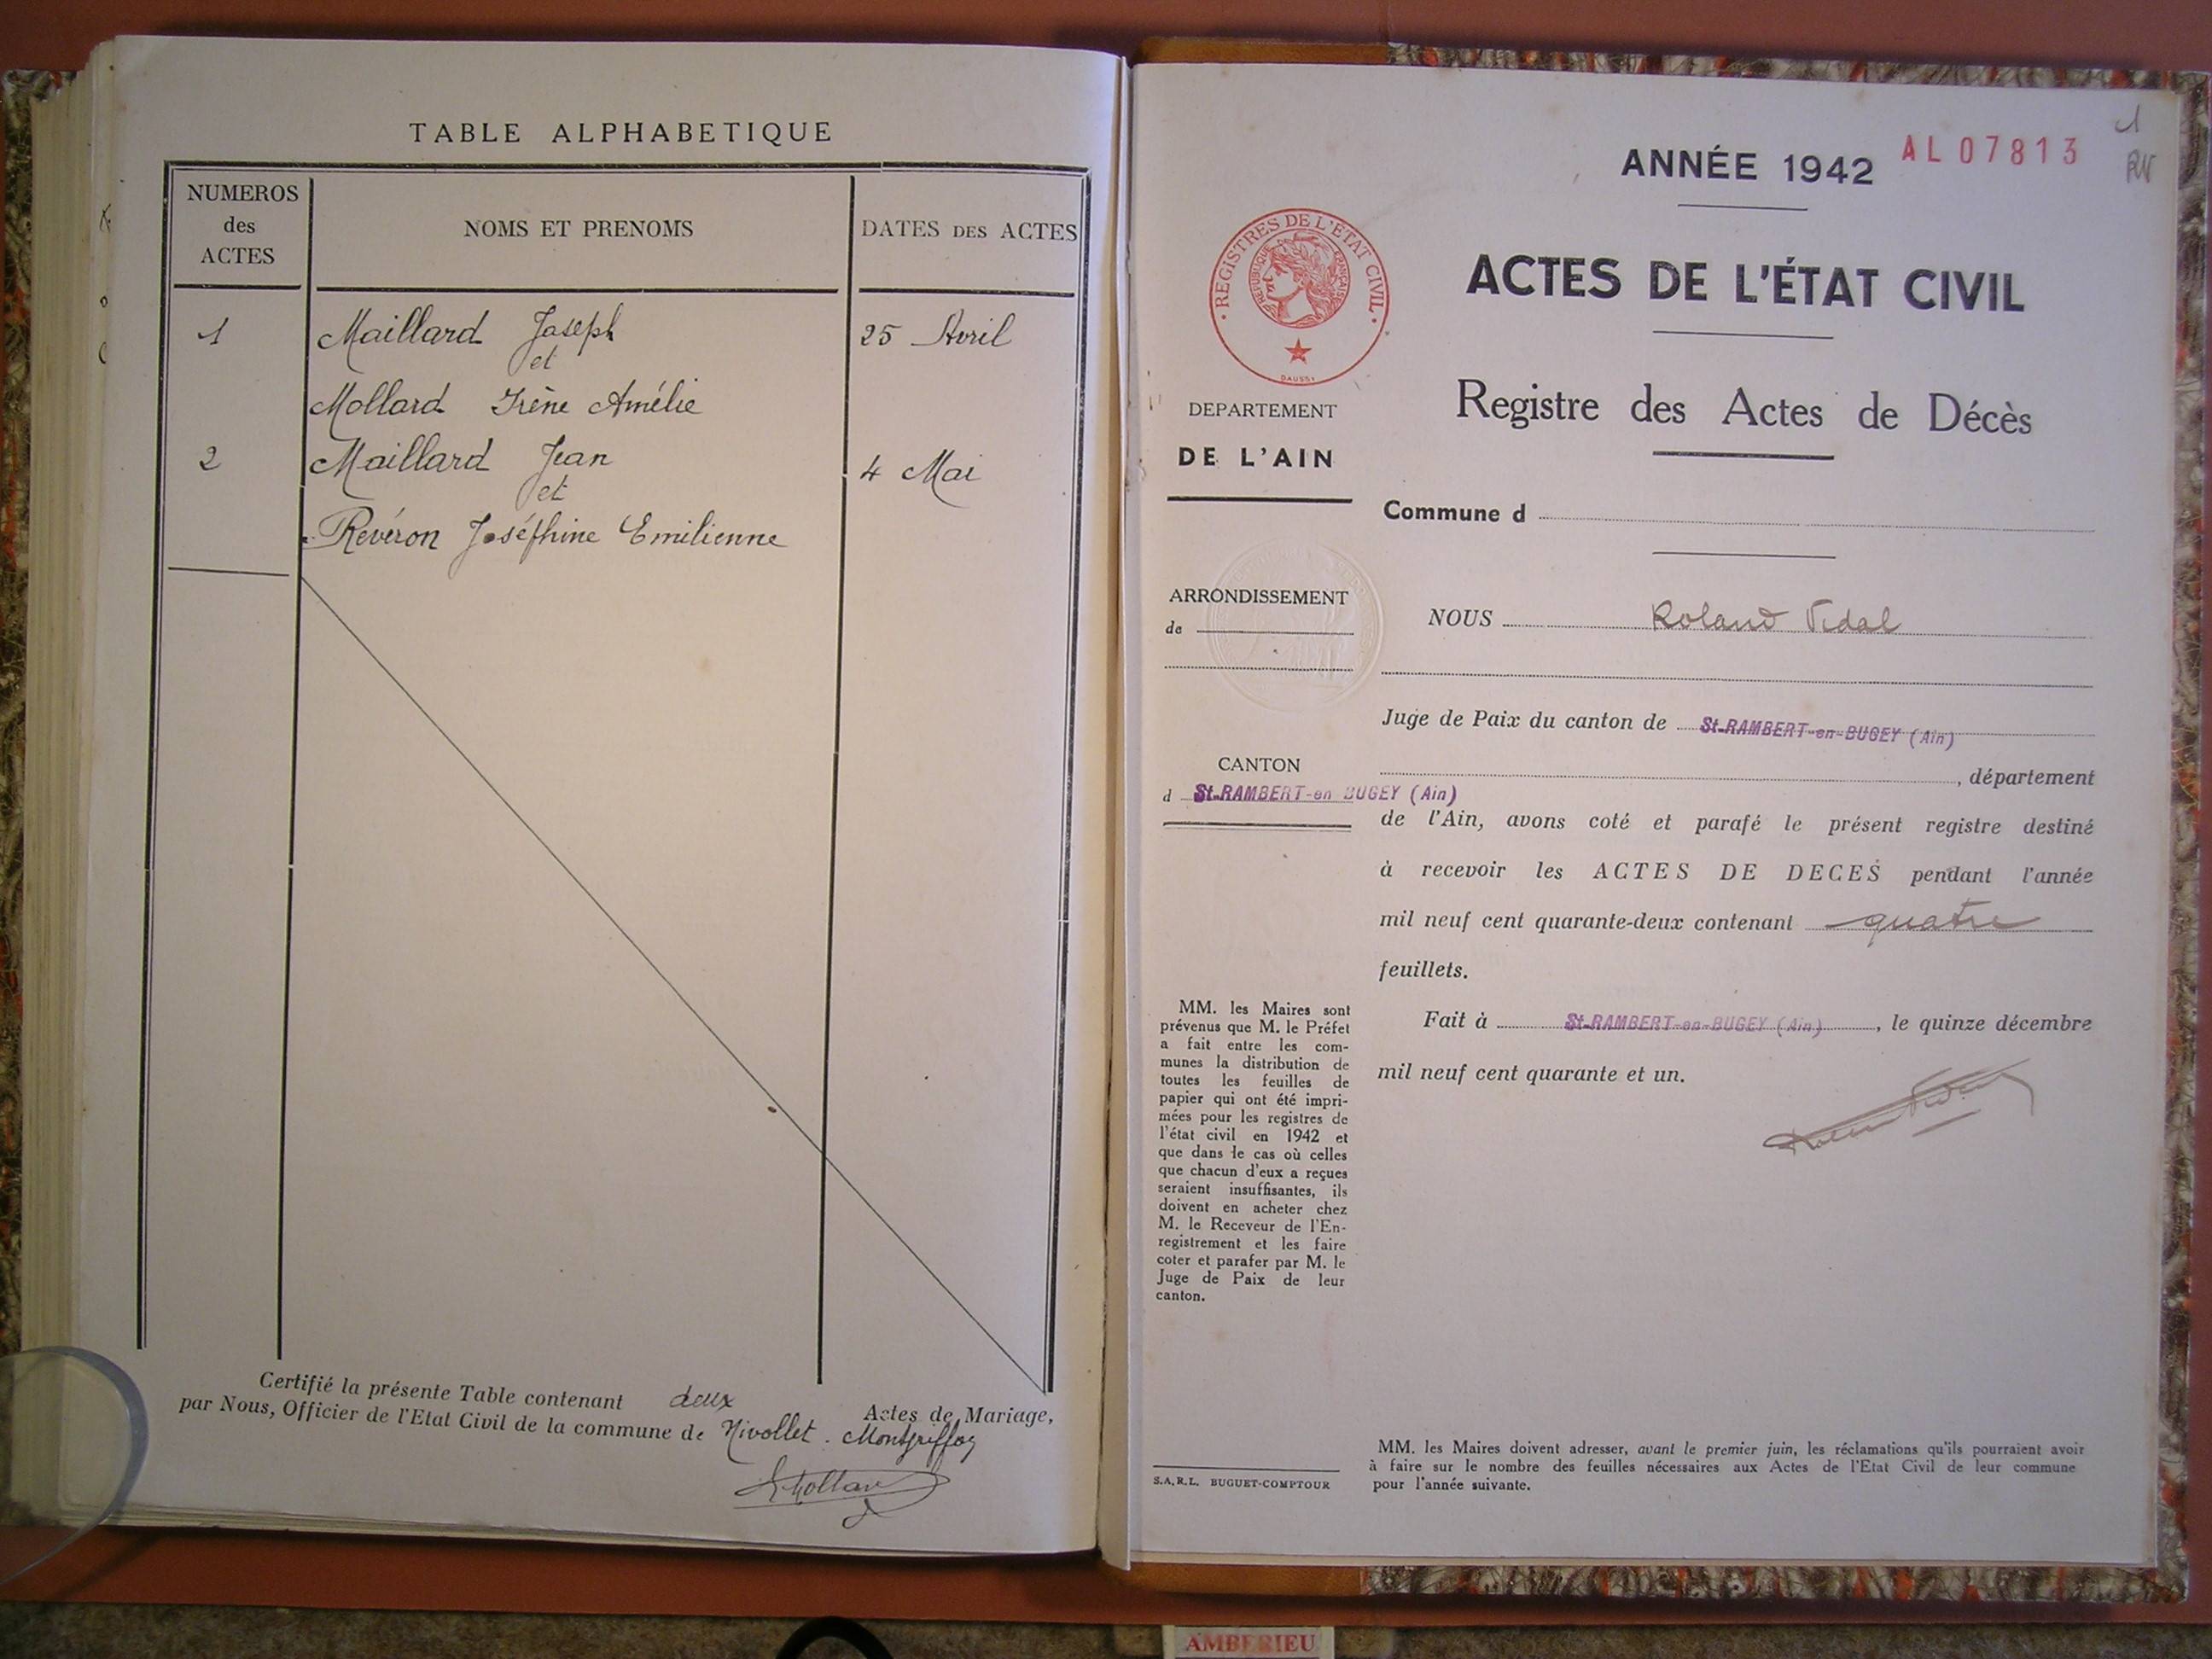 TABLE ALPHABETIQUE
NUMEROS
des
ACTES
NOMS ET PRENOMS
DATES DES ACTES
1 Maillard Joseph 25 Avril
et
Mollard Irène Amélie
2 Maillard Jean 4 Mai
et
Revéron Joséphine Emilienne
Certifié la présente Table contenant deux Actes de Mariage,
par Nous, Officier de l'Etat Civil de la commune de Nivollet. Montgriffon
1
RV
AL07813
ANNÉE 1942
REGISTRES DE L'ETAT CIVIL
REPUBLIQUE FRANÇAISE
ACTES DE L'ÉTAT CIVIL
Registre des Actes de Décès
DEPARTEMENT
DE L'AIN
Commune d
ARRONDISSEMENT
de
NOUS Roland Vidal
Juge de Paix du canton de St-RAMBERT-en-BUGEY (Ain)
, département
CANTON
d St-RAMBERT-en BUGEY (Ain)
de l'Ain, avons coté et parafé le présent registre destiné
à recevoir les ACTES DE DECES pendant l'année
mil neuf cent quarante-deux contenant quatre
feuillets.
Fait à St-RAMBERT-en-BUGEY (Ain), le quinze décembre
mil neuf cent quarante et un.
MM. les Maires sont
prévenus que M. le Préfet
a fait entre les com-
munes la distribution de
toutes les feuilles de
papier qui ont été impri-
mées pour les registres de
l'état civil en 1942 et
que dans le cas où celles
que chacun d'eux a reçues
seraient insuffisantes, ils
doivent en acheter chez
M. le Receveur de l'En-
registrement et les faire
coter et parafer par M. le
Juge de Paix de leur
canton.
S.A.R.L. BUGUET-COMPTOUR
MM. les Maires doivent adresser, avant le premier juin, les réclamations qu'ils pourraient avoir
à faire sur le nombre des feuilles nécessaires aux Actes de l'Etat Civil de leur commune
pour l'année suivante.
AMBERIEU